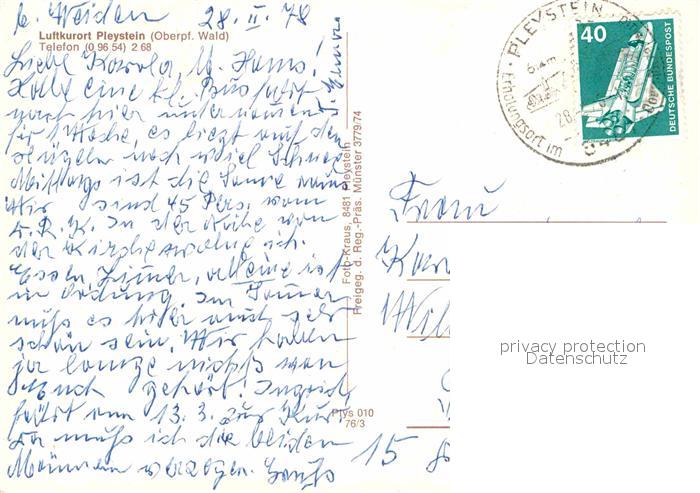 b. Weiden 28. II. 78
Luftkurort Pleystein (Oberpf. Wald)
Telefon (0 96 54) 2 68
Liebe Karola, u. Hans!
Habe eine kl. Busfahrt
nach hier unternommen
für 1 Woche, es liegt auf den
Hügeln noch viel Schnee
Mittags ist die Sonne warm
Wir sind 45 Pers. vom
D. R. K. In der Nähe von
der Kirche wohne ich.
Essen, Zimmer, alles ist
in Ordnung. Im Sommer
muß es hier auch sehr
schön sein. Wir haben
ja lange nichts von
Euch gehört! Ingrid
fährt am 13. 3. zur Kur!
Da muß ich die beiden
Männer versorgen. Gruß
Foto-Kraus, 8481 Pleystein
Freigeg. d. Reg.-Präs. Münster 3779/74
Plys 010
76/3
PLEYSTEIN
Erholungsort im
28.
40
DEUTSCHE BUNDESPOST
Frau
Kar
Wil
15
privacy protection
Datenschutz